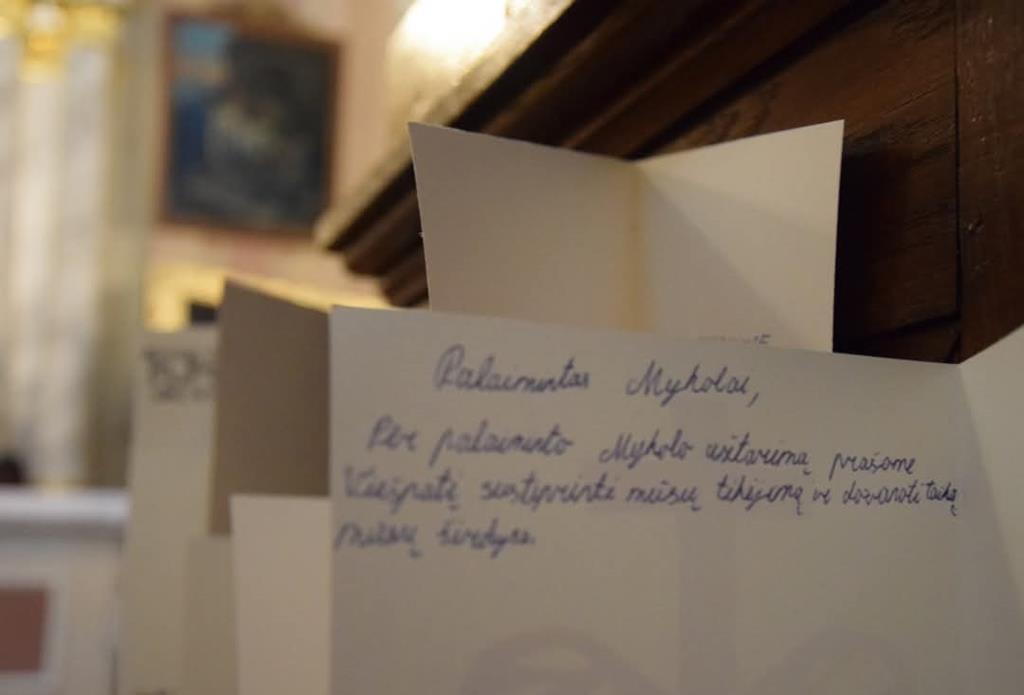 Palaimintas Mykolai,
Per palaiminto Mykolo užtarimą prašome
Viešpatį sustiprinti mūsų tikėjimą ir dovanoti taiką
mūsų širdyse.